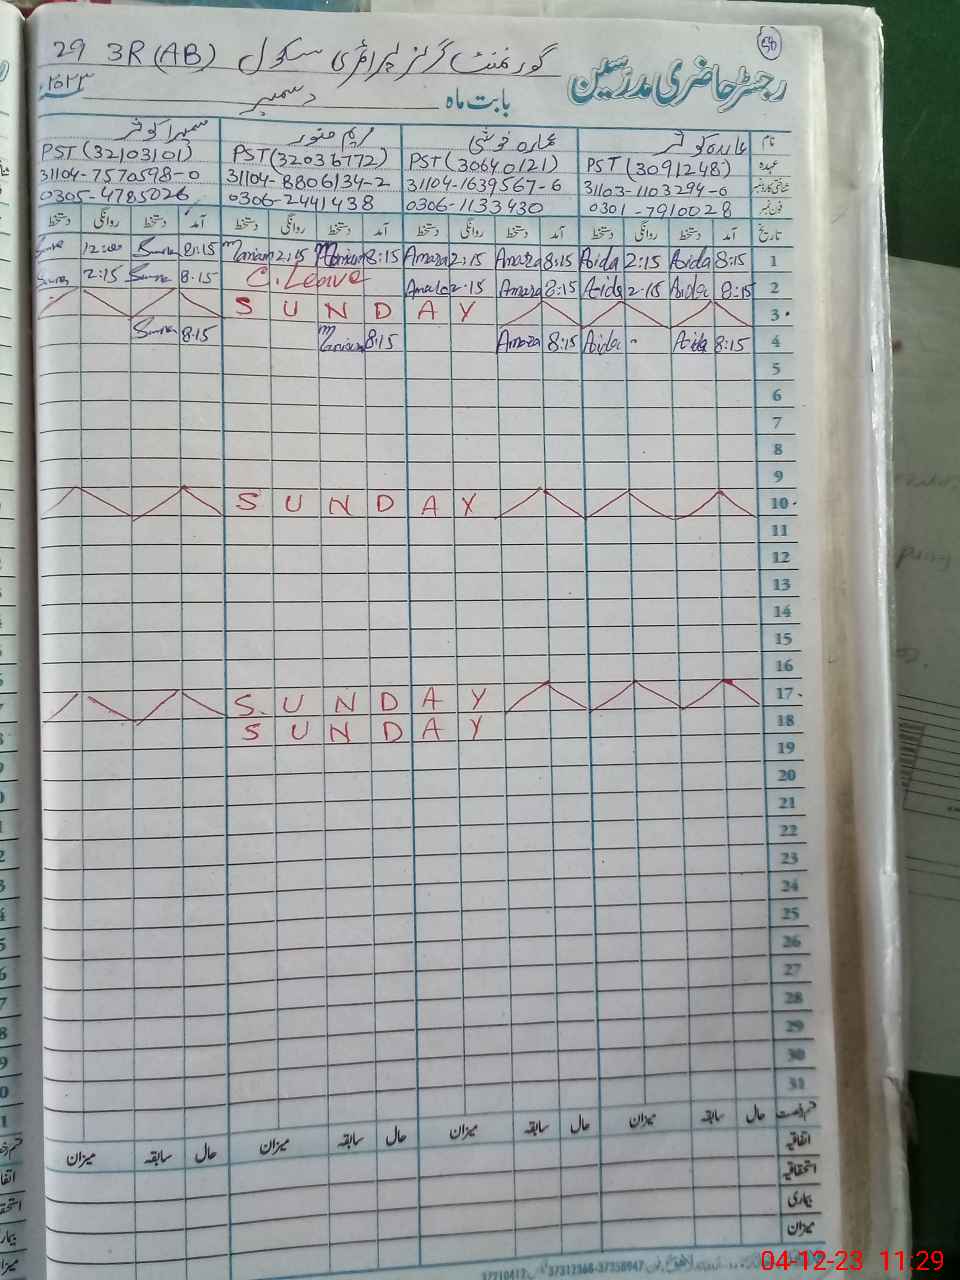 58
رجسٹر حاضری مدرسین
گورنمنٹ گرلز پرائمری سکول 29 3R (AB)
بابت ماہ دسمبر
نام عابدہ کوثر عمارہ خوشی مریم منور سمیرا کوثر
عہدہ PST (3091248) PST (30640121) PST (32036772) PST (32103101)
31103-1103294-0 31104-1639567-6 31104-8806134-2 31104-7570598-0
فون نمبر 0301-7910028 0306-1133430 0306-2441438 0305-4785026
تاریخ آمد دستخط روانگی دستخط آمد دستخط روانگی دستخط آمد دستخط روانگی دستخط آمد دستخط روانگی دستخط
1 8:15 Aida 2:15 Aida 8:15 Amara 2:15 Amara 8:15 Mariam 2:15 Mariam 8:15 12:00
2 8:15 Aida 2:15 Aida 8:15 Amara 2:15 C.Leave 8:15 2:15
3 SUNDAY
4 8:15 Aida Aida 8:15 Amara 8:15 Mariam 8:15
5
6
7
8
9
10 SUNDAY
11
12
13
14
15
16
17 SUNDAY
18 SUNDAY
19
20
21
22
23
24
25
26
27
28
29
30
31
قسم رخصت حال سابقہ میزان حال سابقہ میزان حال سابقہ میزان حال سابقہ میزان
اتفاقیہ
استحقاقیہ
بیماری
میزان
37312368-37358947
37210412
04-12-23 11:29